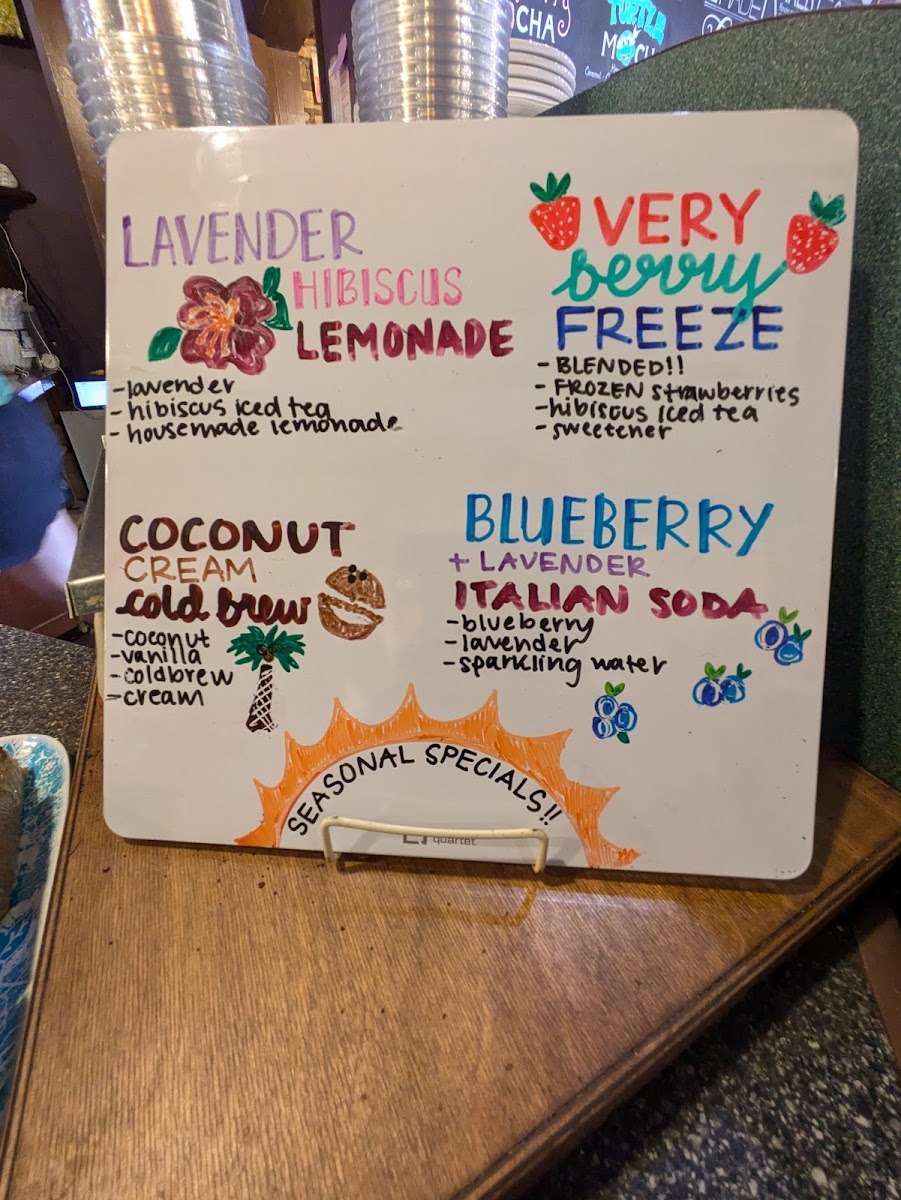 MOCHA
TURTLE
MOCHA
LAVENDER
HIBISCUS
LEMONADE
-lavender
-hibiscus iced tea
-housemade lemonade
VERY
berry
FREEZE
-BLENDED!!
-FROZEN strawberries
-hibiscus iced tea
-sweetener
COCONUT
CREAM
cold brew
-coconut
-vanilla
-coldbrew
-cream
BLUEBERRY
+ LAVENDER
ITALIAN SODA
-blueberry
-lavender
-sparkling water
SEASONAL SPECIALS!!
quartet